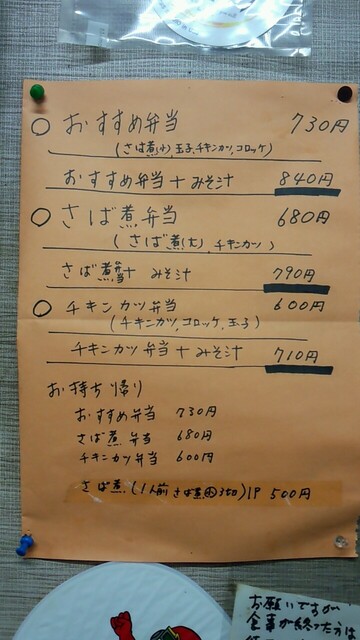 ○ おすすめ弁当 730円
(さば煮(小)、玉子、チキンカツ、コロッケ)
おすすめ弁当+みそ汁 840円
○ さば煮弁当 680円
(さば煮(大)、チキンカツ)
さば煮弁当+みそ汁 790円
○ チキンカツ弁当 600円
(チキンカツ、コロッケ、玉子)
チキンカツ弁当+みそ汁 710円
お持ち帰り
おすすめ弁当 730円
さば煮弁当 680円
チキンカツ弁当 600円
さば煮(1人前さば煮小3切)1P 500円
お願いですが
食事が終った方は